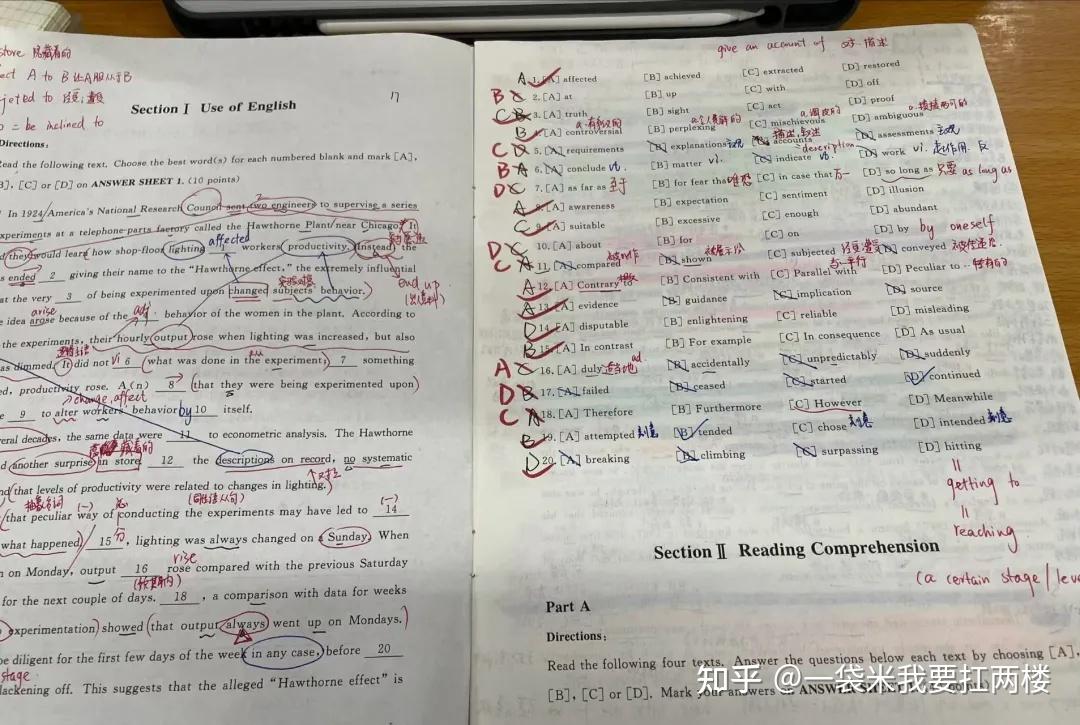 store 隐藏着的
ect A to B 让A服从于B
jeted to 经受,遭受
o = be inclined to
17
Section Ⅰ Use of English
Directions:
Read the following text. Choose the best word(s) for each numbered blank and mark [A],
B], [C] or [D] on ANSWER SHEET 1. (10 points)
In 1924 America's National Research Council sent two engineers to supervise a series
xperiments at a telephone-parts factory called the Hawthorne Plant near Chicago. It
they would learn how shop-floor lighting affected workers productivity. Instead, the
s ended 2 giving their name to the "Hawthorne effect," the extremely influential
end up
at the very 3 of being experimented upon changed subjects' behavior.
arise adj
e idea arose because of the behavior of the women in the plant. According to
the experiments, their hourly output rose when lighting was increased, but also
as dimmed. It did not vi 6 what was done in the experiment; 7 something
ed, productivity rose. A(n) 8 that they were being experimented upon
change, affect
e 9 to alter workers' behavior by 10 itself.
eral decades, the same data were 11 to econometric analysis. The Hawthorne
another surprise in store 12 the descriptions on record, no systematic
nd that levels of productivity were related to changes in lighting.
that peculiar way of conducting the experiments may have led to 14
what happened 15 , lighting was always changed on a Sunday. When
rise
n on Monday, output 16 rose compared with the previous Saturday
for the next couple of days. 18 , a comparison with data for weeks
experimentation) showed that output always went up on Mondays.
be diligent for the first few days of the week in any case, before 20
stage
lackening off. This suggests that the alleged "Hawthorne effect" is
give an account of 对…描述
A 1. [A] affected [B] achieved [C] extracted [D] restored
B 2. [A] at [B] up [C] with [D] off
C 3. [A] truth [B] sight [C] act [D] proof
B 4. [A] controversial [B] perplexing [C] mischievous [D] ambiguous
C 5. [A] requirements [B] explanations [C] accounts [D] assessments
description
B 6. [A] conclude vt. [B] matter vi. [C] indicate vt. [D] work vi. 起作用
D 7. [A] as far as 至于 [B] for fear that [C] in case that 万一 [D] so long as 只要 as long as
A 8. [A] awareness [B] expectation [C] sentiment [D] illusion
C 9. [A] suitable [B] excessive [C] enough [D] abundant
D 10. [A] about [B] for [C] on [D] by by oneself
C 11. [A] compared [B] shown [C] subjected 经受,遭受 [D] conveyed
A 12. [A] Contrary to [B] Consistent with [C] Parallel with 与…平行 [D] Peculiar to 特有的
A 13. [A] evidence [B] guidance [C] implication [D] source
D 14. [A] disputable [B] enlightening [C] reliable [D] misleading
B 15. [A] In contrast [B] For example [C] In consequence [D] As usual
A 16. [A] duly 适当地 ad. [B] accidentally [C] unpredictably [D] suddenly
D 17. [A] failed [B] ceased [C] started [D] continued
C 18. [A] Therefore [B] Furthermore [C] However [D] Meanwhile
B 19. [A] attempted 刻意 [B] tended [C] chose 刻意 [D] intended 刻意
D 20. [A] breaking [B] climbing [C] surpassing [D] hitting
||
getting to
||
reaching
(a certain stage / leve
Section Ⅱ Reading Comprehension
Part A
Directions:
Read the following four texts. Answer the questions below each text by choosing [A],
[B], [C] or [D]. Mark your answers on ANSWER
知乎 @一袋米我要扛两楼